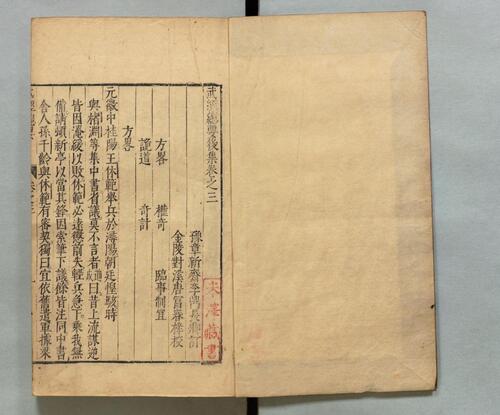 武經總要後集卷之三
豫章新齋李
金陵對溪唐富春梓校
方畧 權奇 臨事制宜
詭道 奇計
方畧
元徽中桂陽王休範舉兵於潯陽朝廷惶駭時
與褚淵等集中書省議莫不言者道曰昔上流謀逆
皆因淹緩以敗休範必遠懲前失輕兵急下乘我無
備請頓新亭以當其鋒因索筆下議餘皆注同中書
舍人孫千齡與休範有審契獨曰宜依舊遣軍據梁
藏書